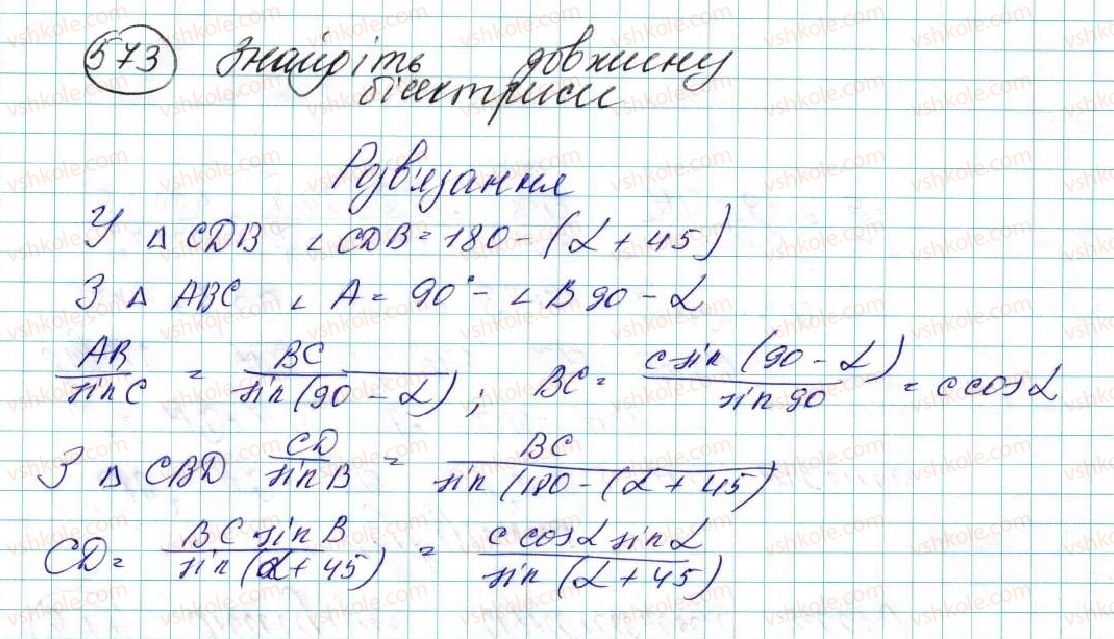 573 Знайдіть довжину
бісектриси
Розв'язання
У △ CDB ∠ CDB = 180 - (α + 45)
З △ ABC ∠ A = 90° - ∠ B 90 - α
AB / sin C = BC / sin (90 - α) ; BC = c sin (90 - α) / sin 90 = c cos α
З △ CBD CD / sin B = BC / sin (180 - (α + 45)
CD = BC sin B / sin (α + 45) = c cos α sin α / sin (α + 45)